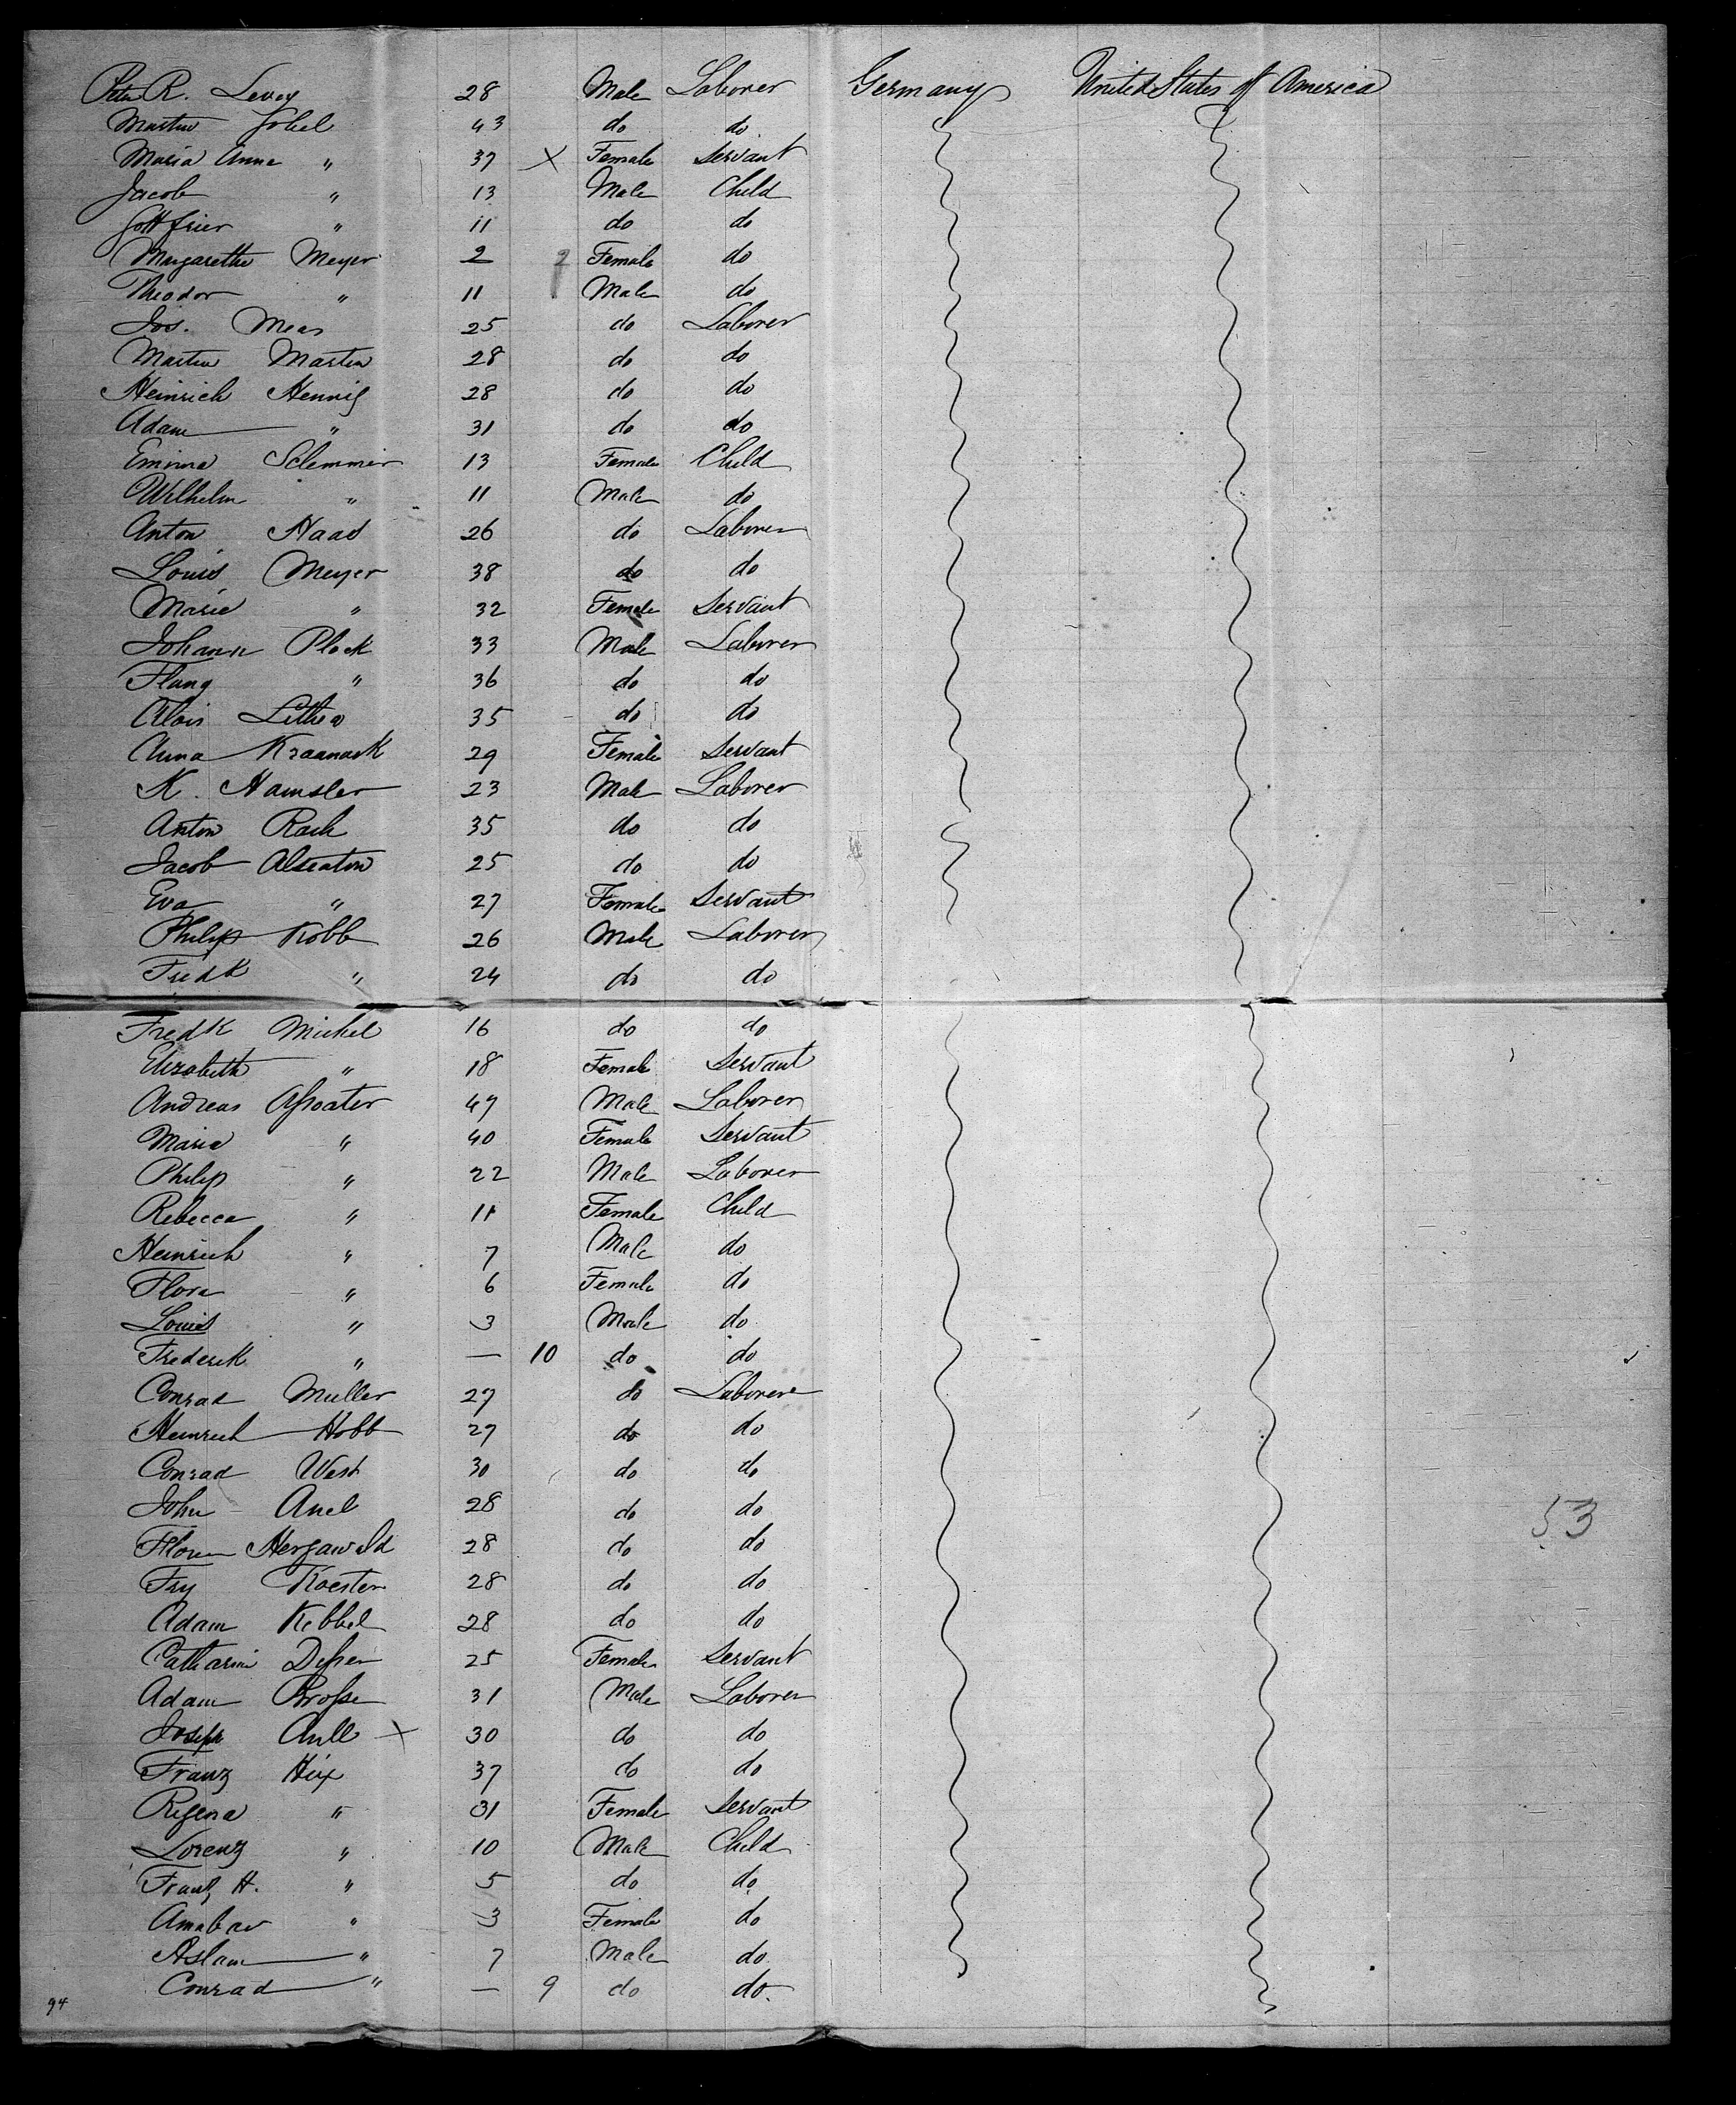 Peter R. Levey 28 Male Laborer Germany United States of America
Martin Johel 43 do do
Maria Anna " 37 X Female Servant
Jacob " 13 Male Child
Gottfrier " 11 do do
Margarethe Meyer 2 2 Female do
Theodor " 11 Male do
Jos. Mees 25 do Laborer
Martin Martin 28 do do
Heinrich Hennig 28 do do
Adam " 31 do do
Emma Sclemmer 13 Female Child
Wilhelm " 11 Male do
Anton Haas 26 do Laborer
Louis Meyer 38 do do
Marie " 32 Female Servant
Johann Plock 33 Male Laborer
" 36 do do
Alois 35 do do
Anna 29 Female Servant
K. Hamsler 23 Male Laborer
Anton Rach 35 do do
Jacob 25 do do
Eva " 27 Female Servant
Philip Kobb 26 Male Laborer
Fredk " 24 do do
Fredk Michel 16 do do
Elizabeth " 18 Female Servant
Andreas 47 Male Laborer
Maria " 40 Female Servant
Philip " 22 Male Laborer
Rebecca " 11 Female Child
Heinrich " 7 Male do
Flora " 6 Female do
Louis " 3 Male do
Frederik " — 10 do do
Conrad Muller 27 do Laborer
Heinrich Hobb 27 do do
Conrad West 30 do do
John Auel 28 do do
53
Hergawald 28 do do
Fry Koester 28 do do
Adam Kebbel 28 do do
Catharin 25 Female Servant
Adam Brosse 31 Male Laborer
Joseph Aull X 30 do do
Franz Hix 37 do do
Regena " 31 Female Servant
Lorenz " 10 Male Child
Frantz H. " 5 do do
" 3 Female do
Aslam " 7 Male do
Conrad " — 9 do do.
94